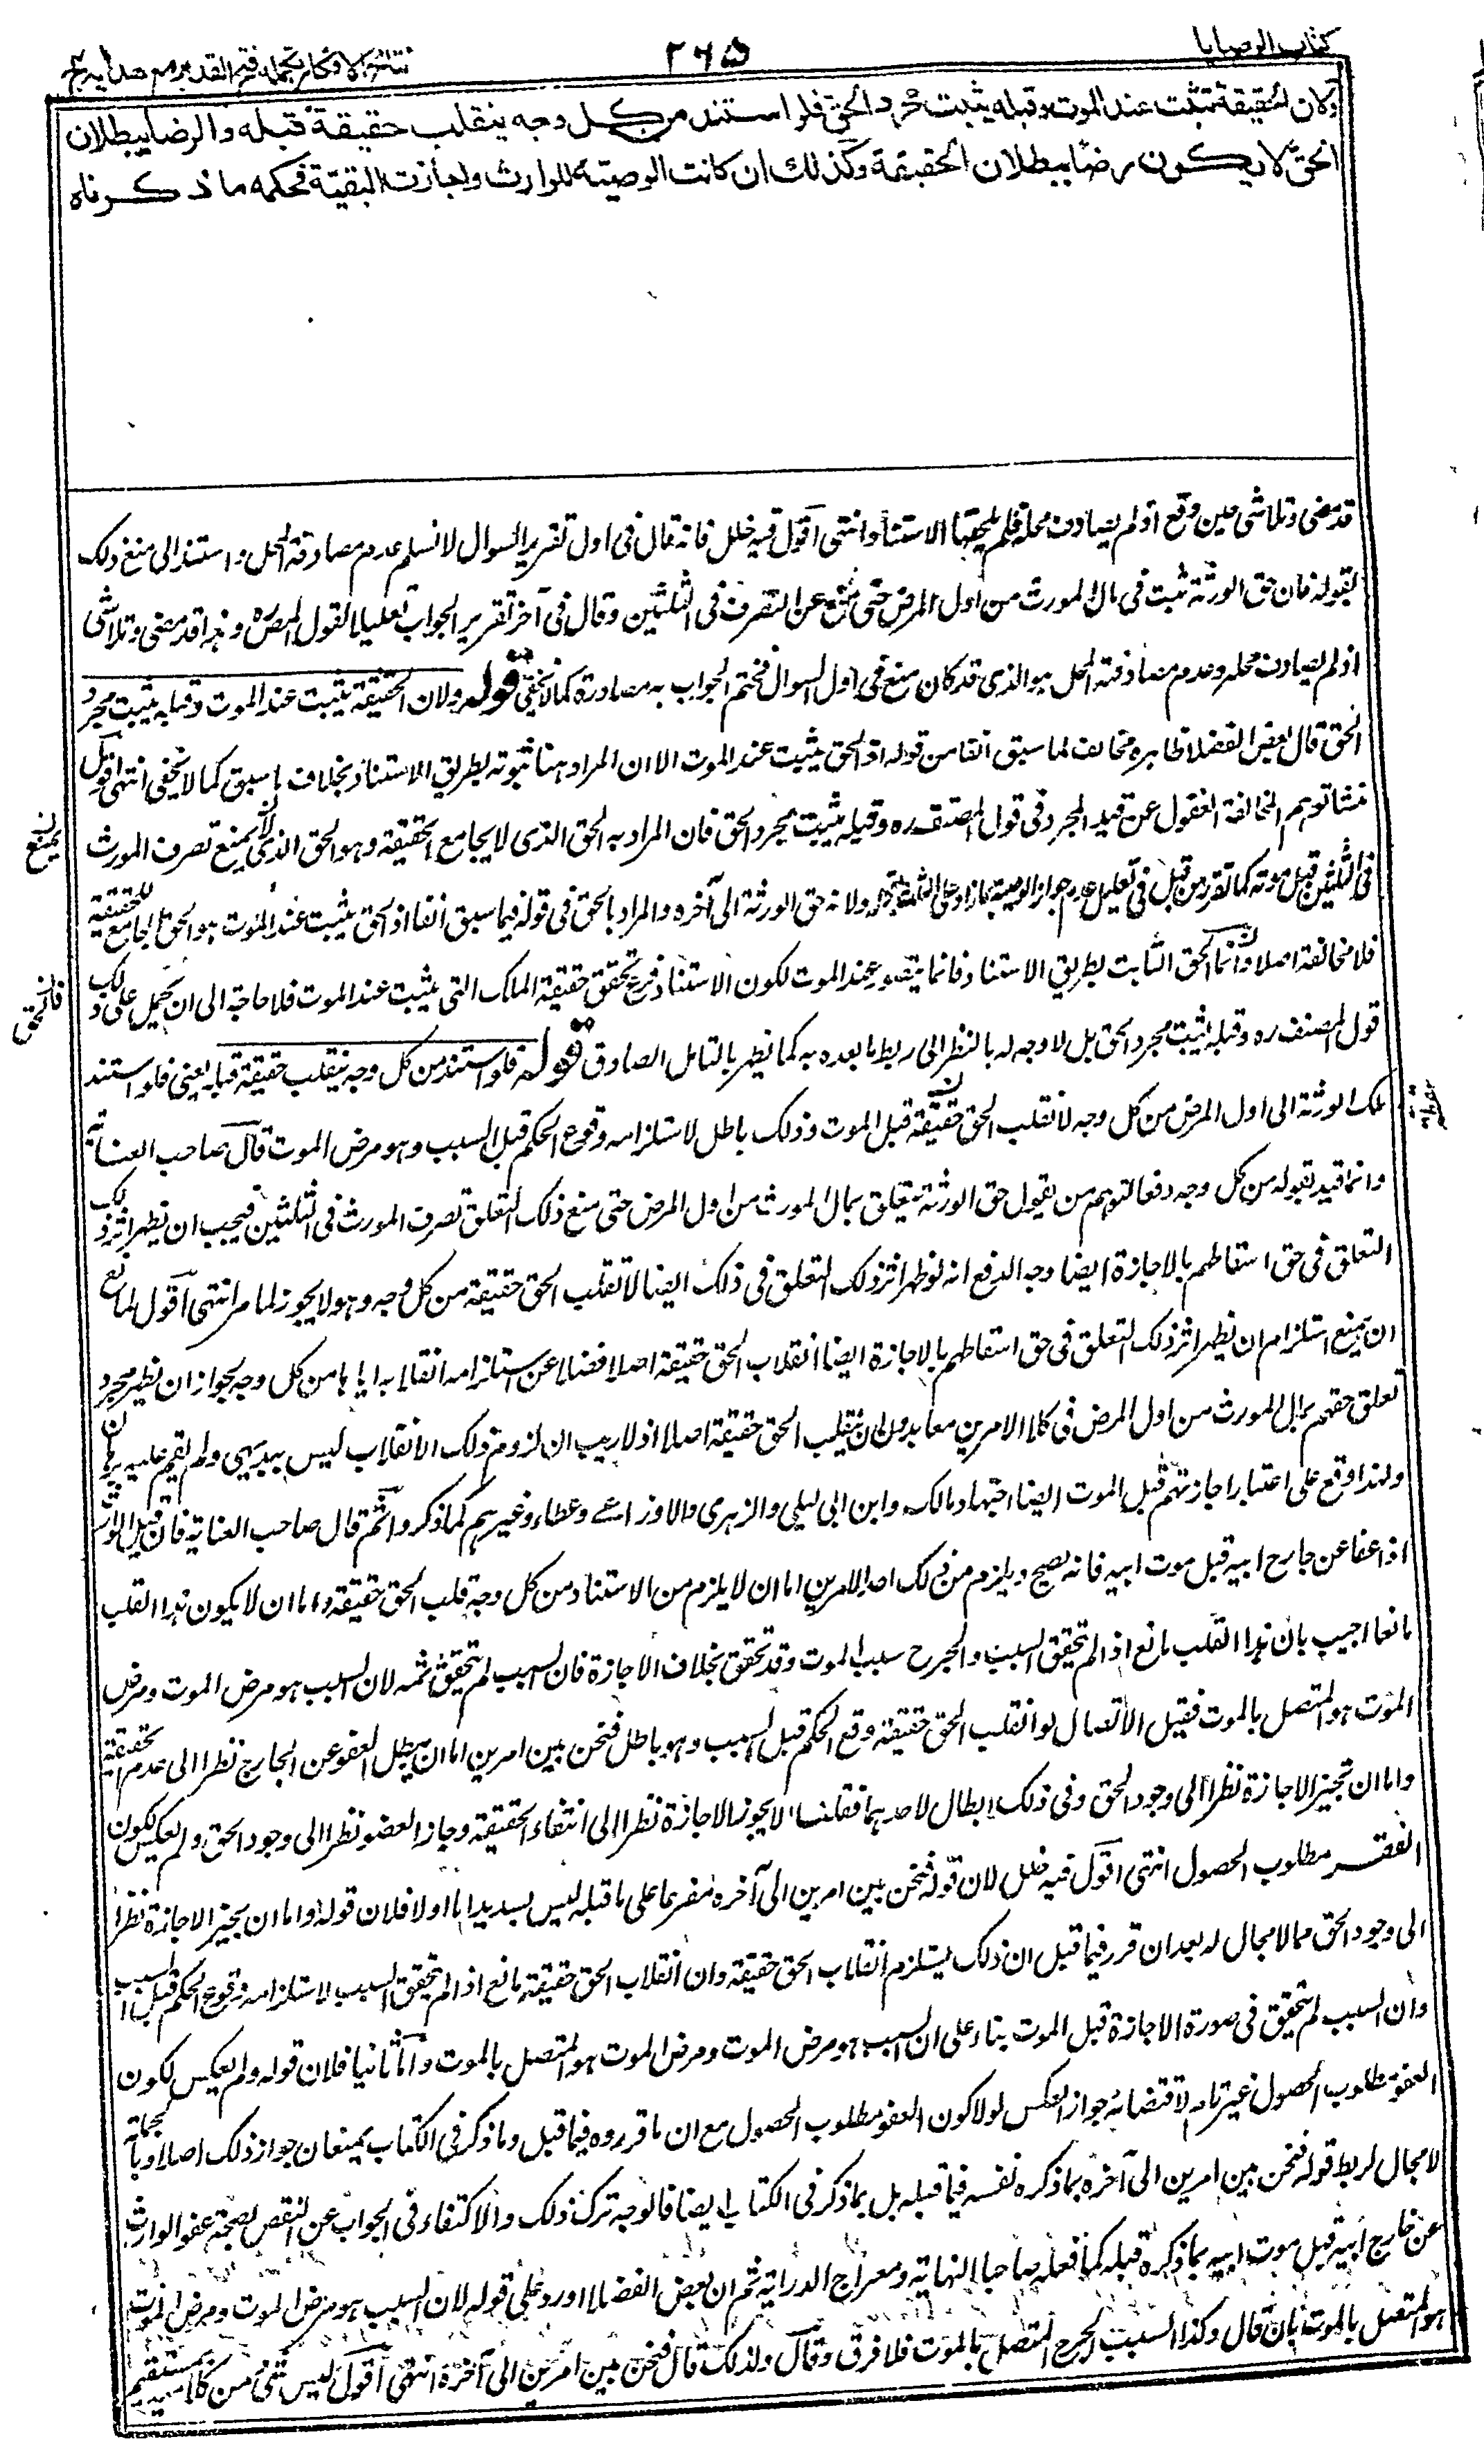 كتاب الوصايا
٢٦٥
نتائج الافكار تكمله فتح القدير مع هدايه ج
ولان الحقيقة تثبت عند الموت وقبله يثبت مجرد الحق فلو استند من كل وجه ينقلب حقيقة قبله والرضا ببطلان
الحق لا يكون رضا ببطلان الحقيقة وكذلك ان كانت الوصية للوارث واجازت البقية فحكمه ما ذكرناه
قد مضى وتلاشى حين وقع اذ لم يصادف محله فلم يلحقها الاستناد انتهى اقول فيه خلل فانه قال فى اول تقرير السوال لا نسلم عدم مصادفة المحل واستند الى منع ذلك
بقوله فان حق الورثة ثبت فى مال المورث من اول المرض حتى منع عن التصرف فى الثلثين وقال فى آخر تقرير الجواب تعليلا لقول المص ره وهذا قد مضى وتلاشى
اذ لم يصادف محله وعدم مصادفة المحل هو الذى قد كان منع فى اول السوال فختم الجواب به مصادرة كما لا يخفى قوله ولان الحقيقة يثبت عند الموت وقبله يثبت مجرد
الحق قال بعض الفضلا ظاهره مخالف لما سبق انفا من قوله اذ الحق يثبت عند الموت الا ان المراد هنا ثبوته بطريق الاستناد بخلاف ما سبق كما لا يخفى انتهى اقول
منشا توهم المخالفة الغفول عن قيد المجرد فى قول المصنف ره وقبله يثبت مجرد الحق فان المراد به الحق الذى لا يجامع الحقيقة وهو الحق الذى يمنع تصرف المورث
يمنع
فى الثلثين قبل موته كما تقرر من قبل فى تعليل عدم جواز الوصية بما زاد على الثلث بقوله ولانه حق الورثة الى آخره والمراد بالحق فى قوله فيما سبق انفا اذ الحق يثبت عند الموت هو الحق الجامع للحقيقة
فلا مخالفة اصلا وانما الحق الثابت بطريق الاستناد فانما يتصور عند الموت لكون الاستناد فرع تحقق حقيقة الملك التى يثبت عند الموت فلا حاجة الى ان يحمل على ذلك
فالحق
قول المصنف ره وقبله يثبت مجرد الحق بل لا وجه له بالنظر الى ربط ما بعده به كما يظهر بالتامل الصادق قوله فلو استند من كل وجه ينقلب حقيقة قبله يعنى فلو استند
ملك الورثة الى اول المرض من كل وجه لانقلب الحق حقيقة قبل الموت وذلك باطل لاستلزامه وقوع الحكم قبل السبب وهو مرض الموت قال صاحب العناية
وانما قيد بقوله من كل وجه دفعا لتوهم من يقول حق الورثة يتعلق بمال المورث من اول المرض حتى منع ذلك التعلق تصرف المورث فى الثلثين فيجب ان يظهر اثر ذلك
التعلق فى حق اسقاطهم بالاجازة ايضا وجه الدفع انه لو ظهر اثر ذلك التعلق فى ذلك ايضا لانقلب الحق حقيقة من كل وجه وهو لا يجوز لما مر انتهى اقول لمانع
ان يمنع استلزام ان يظهر اثر ذلك التعلق فى حق اسقاطهم بالاجازة ايضا انقلاب الحق حقيقة اصلا فضلا عن استلزامه انقلابه اياها من كل وجه لجواز ان يظهر مجرد
تعلق حقهم بمال المورث من اول المرض فى كلا الامرين معا بدون ان ينقلب الحق حقيقة اصلا اذ لا ريب ان لزوم ذلك الانقلاب ليس ببديهى ولم يقم عليه برهان
ولهذا وقع على اعتبار اجازتهم قبل الموت ايضا اجتهاد مالك وابن ابى ليلى والزهرى والاوزاعى وعطاء وغيرهم كما ذكروا ثم قال صاحب العناية فان قيل الوارث
اذا عفا عن جارح ابيه قبل موت ابيه فانه يصح ويلزم من ذلك احد الامرين اما ان لا يلزم من الاستناد من كل وجه قلب الحق حقيقة واما ان لا يكون هذا القلب
مانعا اجيب بان هذا القلب مانع اذا لم تحقق السبب والجرح سبب الموت وقد تحقق بخلاف الاجازة فان السبب لم يتحقق ثمه لان السبب هو مرض الموت ومرض
الموت هو المتصل بالموت فقبل الاتصال لو انقلب الحق حقيقة وقع الحكم قبل السبب وهو باطل فنحن بين امرين اما ان يبطل العفو عن الجارح نظرا الى عدم الحقيقة
واما ان تجيز الاجازة نظرا الى وجود الحق وفى ذلك ابطال لاحدهما فقلنا لا يجوز الاجازة نظرا الى انتفاء الحقيقة وجاز العفو نظرا الى وجود الحق ولم يعكس لكون
العفو مطلوب الحصول انتهى اقول فيه خلل لان قوله فنحن بين امرين الى آخره مفرعا على ما قبله ليس بسديد اما اولا فلان قوله واما ان يجيز الاجازة نظرا
الى وجود الحق مما لا مجال له بعد ان قرر فيما قبل ان ذلك يستلزم انقلاب الحق حقيقة وان انقلاب الحق حقيقة مانع اذا لم تحقق السبب لاستلزامه وقوع الحكم قبل السبب
وان السبب لم يتحقق فى صورة الاجازة قبل الموت بناء على ان السبب هو مرض الموت ومرض الموت هو المتصل بالموت واما ثانيا فلان قوله ولم يعكس لكون
العفو مطلوب الحصول غير تام لاقتضائه جواز العكس لولا كون العفو مطلوب الحصول مع ان ما قرروه فيما قبل وما ذكر فى الكتاب يمنعان جواز ذلك اصلا وبالجملة
لا مجال لربط قوله فنحن بين امرين الى آخره بما ذكره نفسه فيما قبله بل بما ذكر فى الكتاب ايضا فالوجه ترك ذلك والاكتفاء فى الجواب عن النقض بصحة عفو الوارث
عن جارح ابيه قبل موت ابيه بما ذكره قبله كما فعله صاحبا النهاية ومعراج الدراية ثم ان بعض الفضلا اورد على قوله لان السبب هو مرض الموت ومرض الموت
هو المتصل بالموت بان قال وكذا السبب الجرح المتصل بالموت فلا فرق وقال ولذلك قال فنحن بين امرين الى آخره انتهى اقول ليس شئ من كلاميه بمستقيم